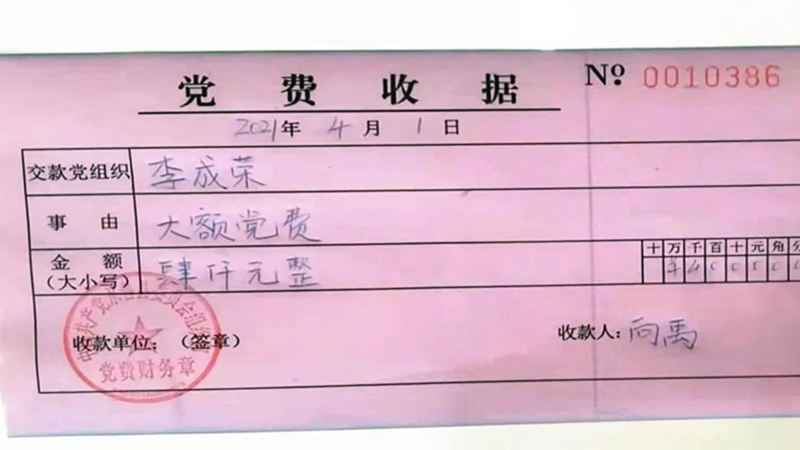 党费收据
Nº 0010386
2021年 4月 1日
交款党组织 李成荣
事由 大额党费
金额 肆仟元整
(大小写)
十万千百十元角分
¥4000
收款单位:(签章)
收款人:向禹
党费财务章